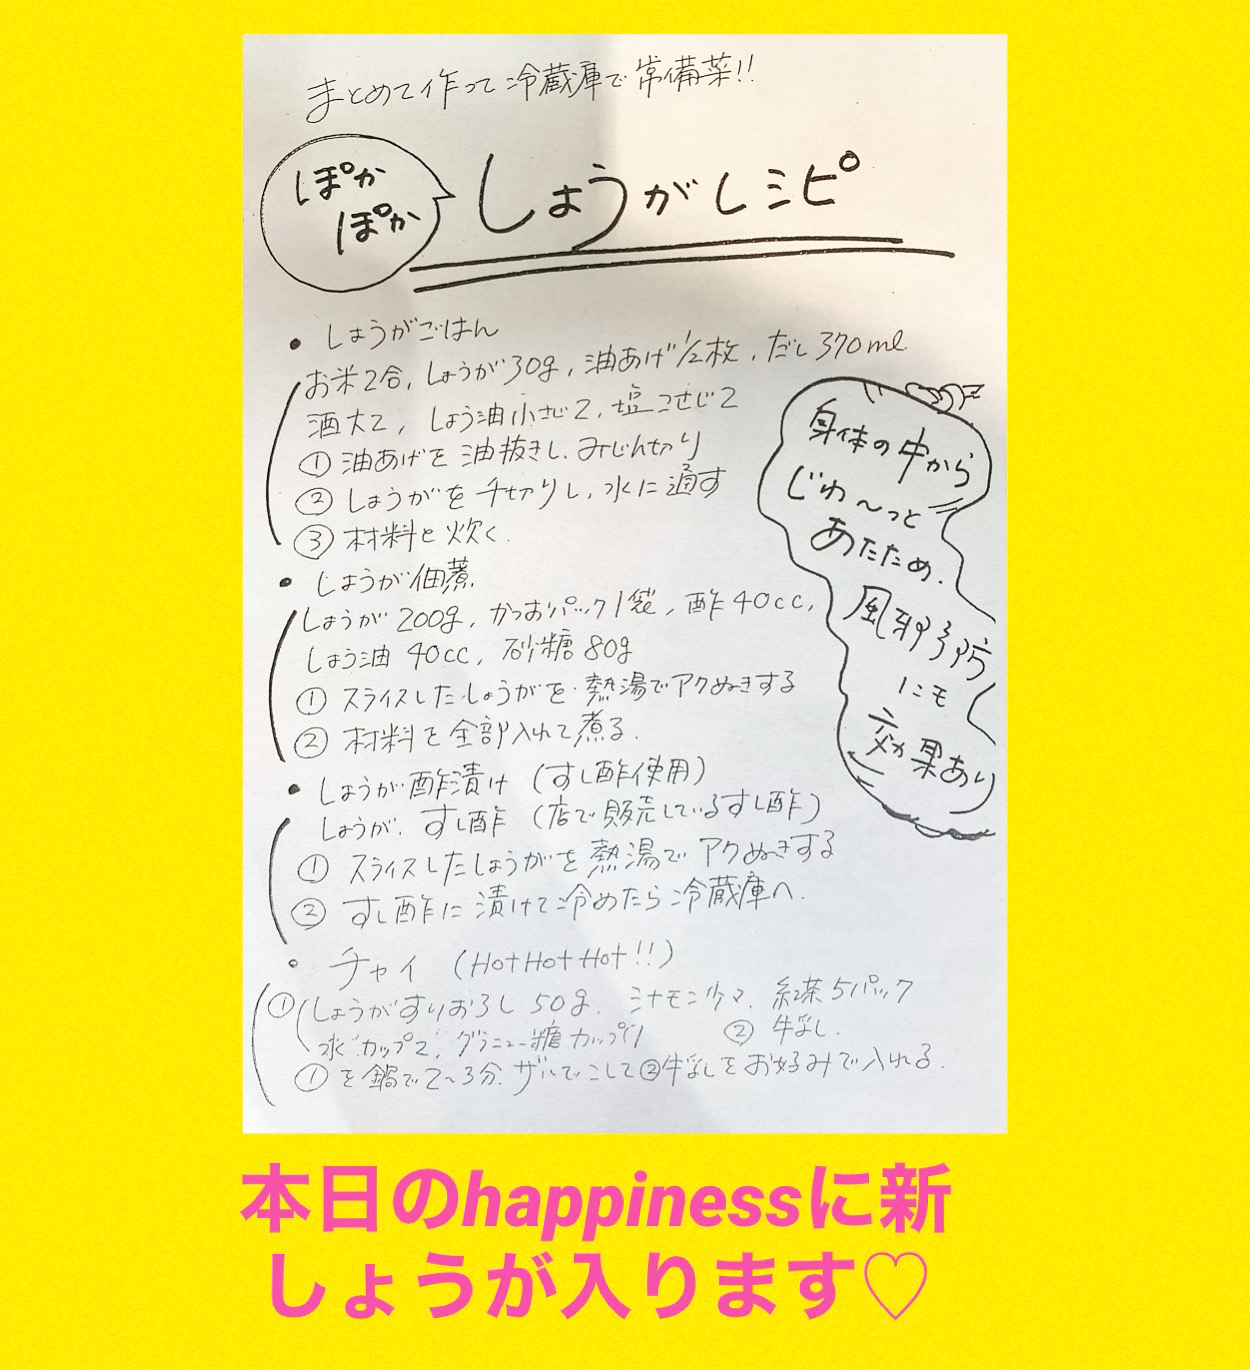 まとめて作って冷蔵庫で常備菜!!
ぽか
ぽか
しょうがレシピ
・しょうがごはん
お米2合,しょうが30g,油あげ1/2枚,だし370ml
酒大2,しょう油小さじ2,塩こさじ2
①油あげを油抜きし、みじん切り
②しょうがを千切りし、水に通す
③材料を炊く.
・しょうが佃煮.
しょうが200g,かつおパック1袋,酢40cc,
しょう油40cc,砂糖80g
①スライスしたしょうがを熱湯でアクぬきする
②材料を全部入れて煮る.
・しょうが酢漬け(すし酢使用)
しょうが.すし酢(店で販売しているすし酢)
①スライスしたしょうがを熱湯でアクぬきする
②すし酢に漬けて冷めたら冷蔵庫へ.
・チャイ(HotHotHot!!)
①しょうがすりおろし50g.シナモン少々.紅茶5パック
水カップ2,グラニュー糖カップ1
②牛乳.
①を鍋で2〜3分.ザルでこして②牛乳をお好みで入れる.
身体の中から
じわ〜っと
あたため.
風邪予防
にも
効果あり
本日のhappinessに新
しょうが入ります♡